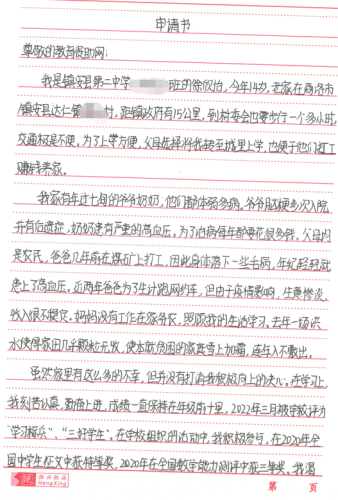 申请书
尊敬的教育资助网:
我是镇安县第二中学 班的徐欣怡,今年14岁,老家在商洛市
镇安县达仁镇 村,距镇政府有15公里,到村委会也要步行一个多小时
交通极是不便,为了上学方便,父母选择将我转至城里上学,也便于他们打工
赚钱养家。
我家有年过七旬的爷爷奶奶,他们都体弱多病。爷爷 多次入院
并有后遗症,奶奶患有严重的高血压,为了治病每年都要花很多钱。父母均
是农民,爸爸几年前在煤矿上打工,因此身体落下一些毛病,年纪轻轻就
患上了高血压。近两年爸爸为了生计跑网约车,但由于疫情影响,生意惨淡,
收入很不稳定。妈妈没有工作在家务农,照顾我的生活学习。去年一场洪
水使得家田几乎颗粒无收,使本就贫困的家真雪上加霜,连年入不敷出。
虽然家里有这么多的不幸,但并没有打消我积极向上的决心。在学习上
我刻苦认真,勤奋上进,成绩一直保持在年级前十里,2022年三月被学校评为
“学习标兵”、“三好学生”。在学校组织的活动中,我积极参与,在2020年全
国中学生征文中获特等奖,2020年在全国数学能力测评中获三等奖。我渴
恒兴纸品
HengXing
第 页